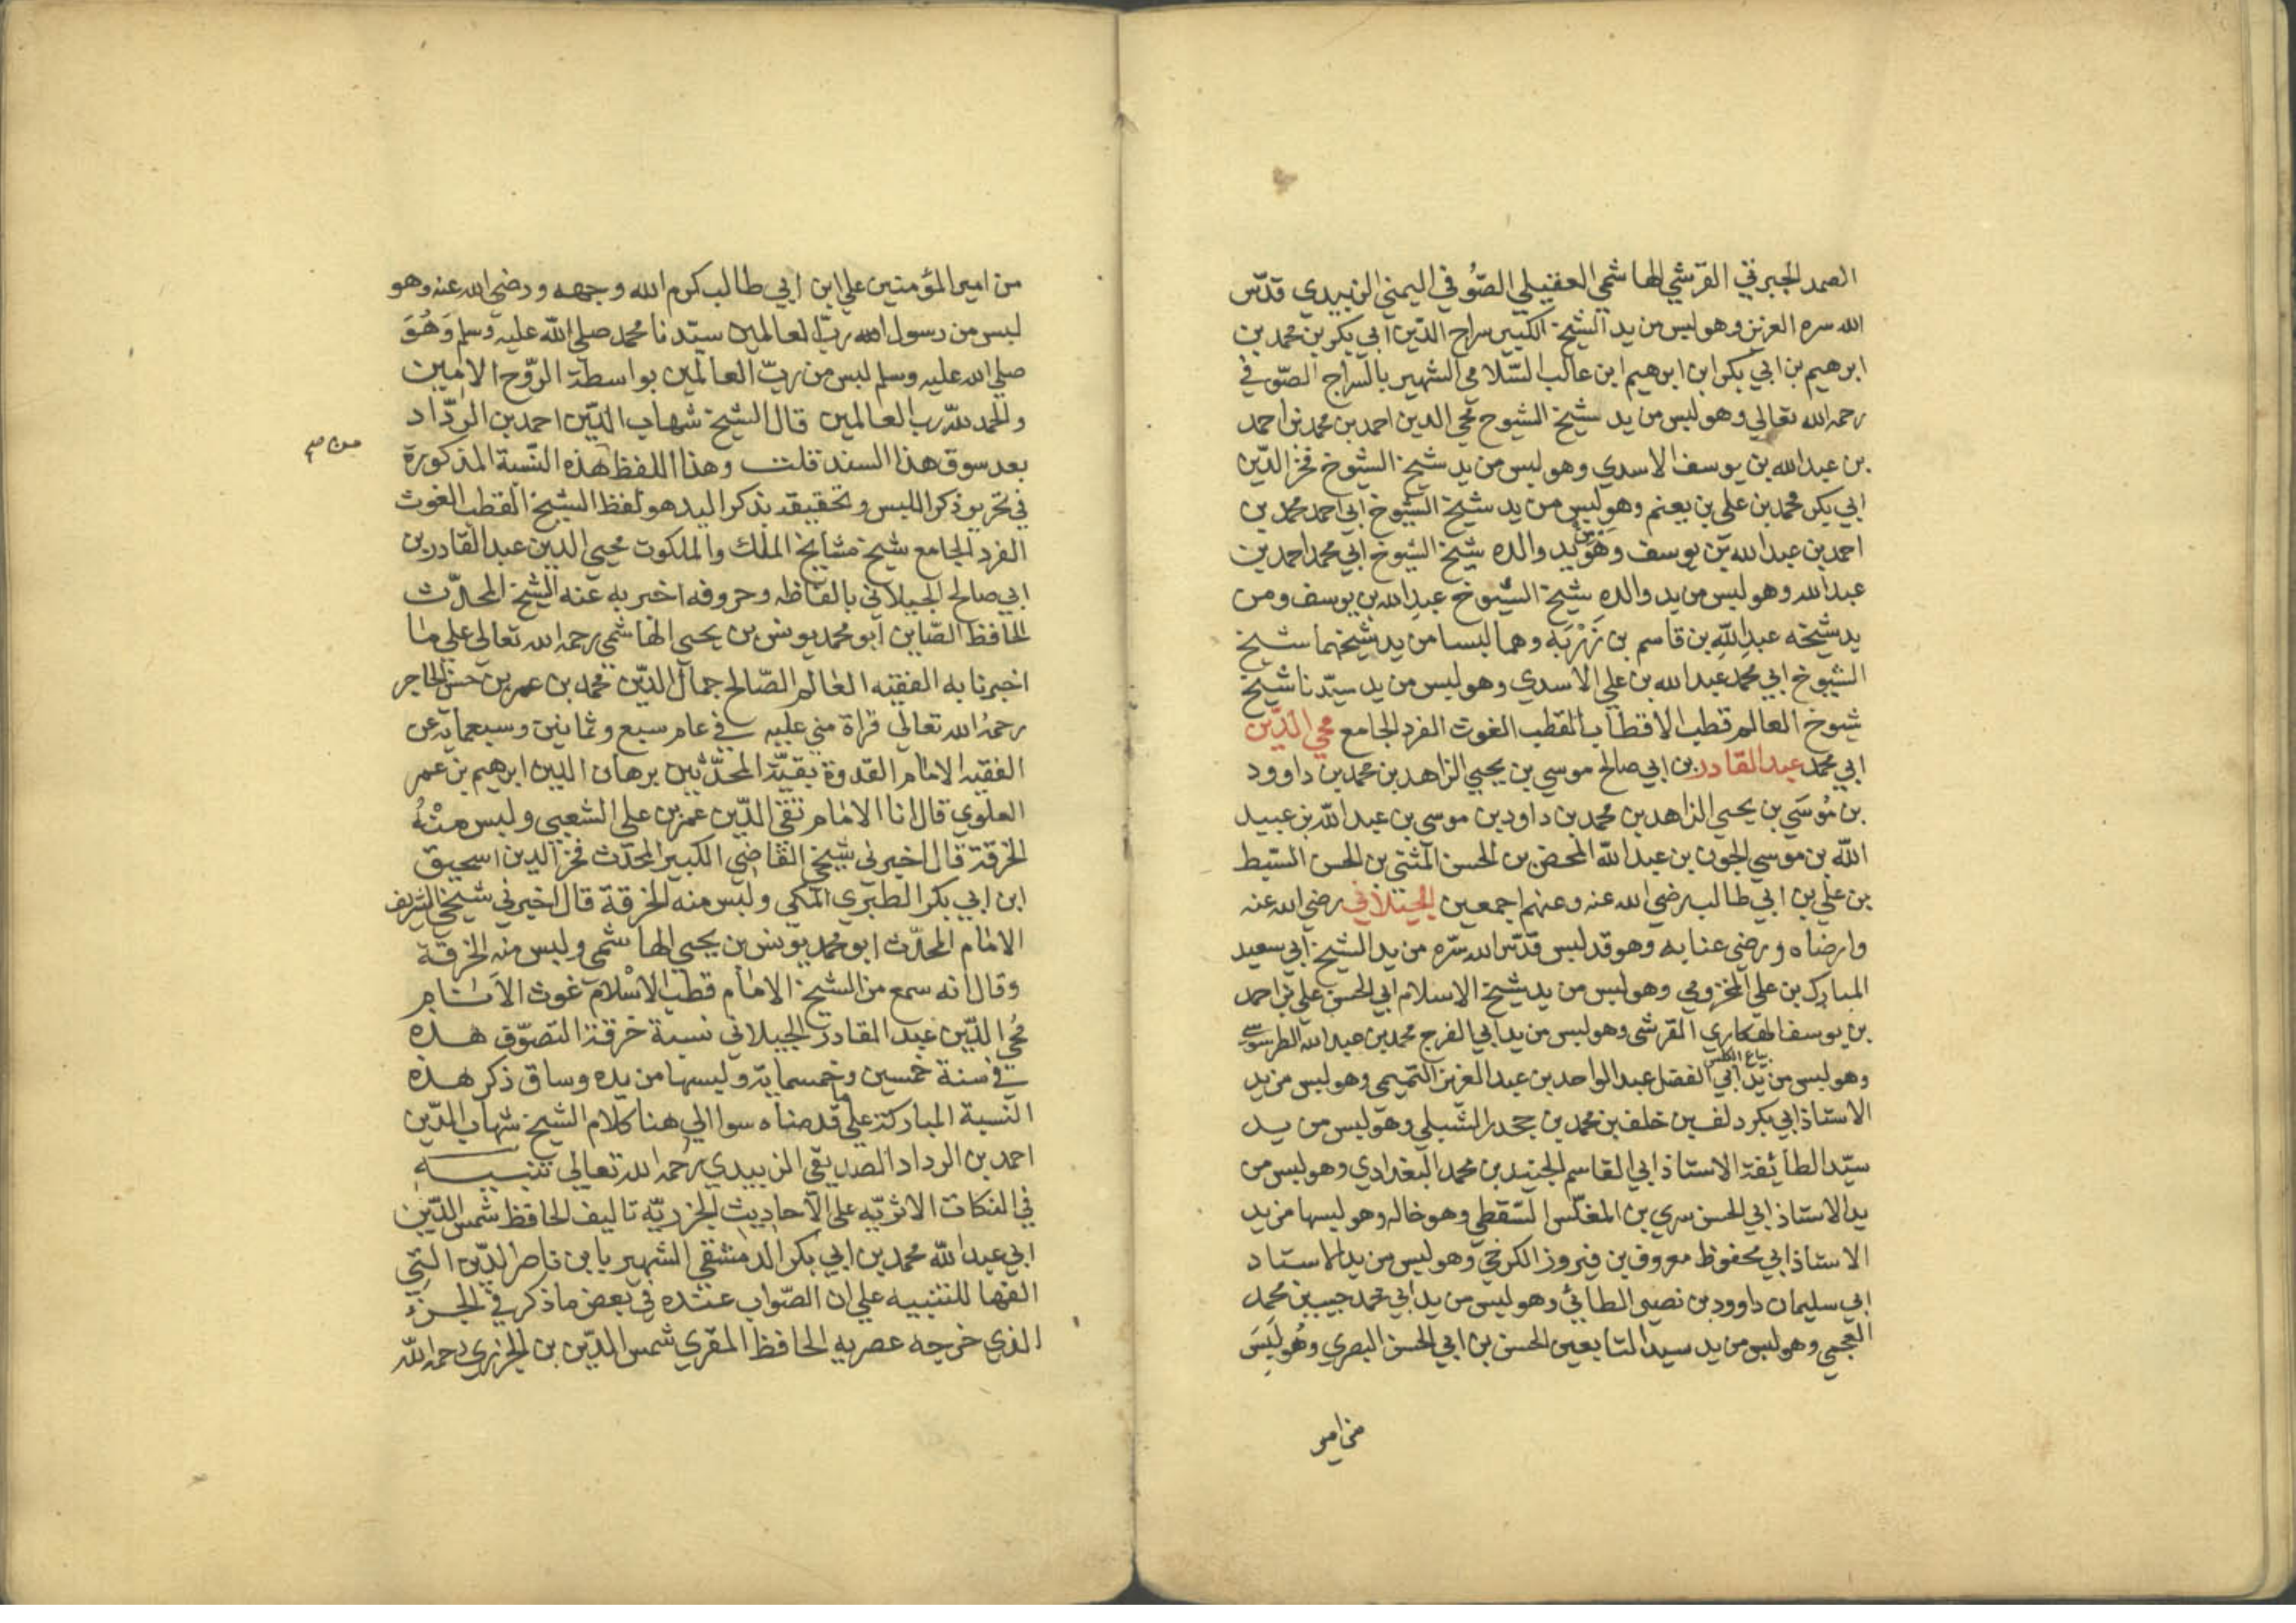 الصمد الجبرتي القرشي الهاشمي العقيلي الصُّوفي اليمني الزبيدي قدّس
الله سره العزيز وهو لبس من يد الشيخ الكبير سراج الدّين ابي بكر بن محمد بن
ابرهيم بن ابي بكر ابن ابرهيم ابن غالب السّلامي الشهير بالسّراج الصّوفي
رحمه الله تعالي وهو لبس من يد شيخ الشيوخ محي الدين احمد بن محمد بن احمد
بن عبد الله بن يوسف الاسدي وهو لبس من يد شيخ الشيوخ فخر الدّين
ابي بكر محمد بن علي بن يغنم وهو لبس من يد شيخ الشيوخ ابي احمد محمد بن
احمد بن عبد الله بن يوسف وهو من يد والده شيخ الشيوخ ابي محمد احمد بن
عبد الله وهو لبس من يد والده شيخ الشيوخ عبد الله بن يوسف ومن
يد شيخه عبد الله بن قاسم بن زَرْبَة وهما لبسا من يد شيخهما شيخ
الشيوخ ابي محمد عبد الله بن علي الاسدي وهو لبس من يد سيّدنا شيخ
شيوخ العالم قطب الاقطاب القطب الغوث الفرد الجامع محي الدّين
ابي محمد عبد القادر بن ابي صالح موسي بن يحيي الزاهد بن محمد بن داوود
بن مُوسَي بن يحيي الزاهد بن محمد بن داود بن موسي بن عبد الله بن عبيد
الله بن موسي الجون بن عبد الله المحض بن الحسن المثني بن الحسن السّبط
بن علي بن ابي طالب رضي الله عنه وعنهم اجمعين الجيلاني رضي الله عنه
وارضاه ورضي عنا به وهو قد لبس قدّس الله سرّه من يد الشيخ ابي سعيد
المبارك بن علي المخزومي وهو لبس من يد شيخ الاسلام ابي الحسن علي بن احمد
بن يوسف الهكاري القرشي وهو لبس من يد ابي الفرج محمد بن عبد الله الطرسوسي
وهو لبس من يد ابي الفضل عبد الواحد بن عبد العزيز التميمي وهو لبس من يد
الاستاذ ابي بكر دلف بن خلف بن محمد بن جحدر الشبلي وهو لبس من يد
سيّد الطائفة الاستاذ ابي القاسم الجنيد بن محمد البغدادي وهو لبس من
يد الاستاذ ابي الحسن سري بن المغلّس السّقطي وهو خاله وهو لبسها من يد
الاستاذ ابي محفوظ معروف بن فيروز الكرخي وهو لبس من يد الاستاد
ابي سليمان داوود بن نصير الطائي وهو لبس من يد ابي محمد حبيب بن محمد
العجمي وهو لبس من يد سيد التابعين الحسن بن ابي الحسن البصري وهُو لَبِسَ
من امير
من امير المؤمنين علي ابن ابي طالب كرم الله وجهه ورضي الله عنه وهو
لبس من رسول الله ربّ العالمين سيّدنا محمد صلي الله عليه وسلم وَهُوَ
صلي الله عليه وسلم لبس من ربّ العالمين بواسطة الروّح الامين
والحمد لله رب العالمين قال الشيخ شهاب الدّين احمد بن الردّاد
بعد سوق هذا السند قلت وهذا اللفظ هذه النّسبة المذكورة
في تحرير ذكر اللبس وتحقيقه بذكر اليد هو لفظ الشيخ القطب الغوث
الفرد الجامع شيخ مشايخ الملك والملكوت محيي الدين عبد القادر بن
ابي صالح الجيلاني بالفاظه وحروفه اخبر به عنه الشيخ المحدّث
الحافظ الصّاين ابو محمد يونس بن يحيي الهاشمي رحمه الله تعالي علي ما
اخبرنا به الفقيه العالم الصّالح جمال الدّين محمد بن عمر بن حسن الحاجر
رحمُه الله تعالي قراة مني عليه في عام سبع وثمانين وسبعماية عن
الفقيه الامام القدوة بقيّة المحدّثين برهان الدين ابرهيم بن عمر
العلوي قال انا الامام تقي الدّين عمر بن علي الشعبي ولبس منْهُ
الخرقة قال اخبرني شيخي القاضي الكبير المحدّث فخر الدين اسحيق
ابن ابي بكر الطبري المكي ولبس منه الخرقة قال اخبرني شيخي الشريف
الامام المحدّث ابو محمد يونس بن يحيي الهاشمي ولبس منه الخرقة
وقال انه سمع من الشيخ الامام قطب الاسْلام غوث الاَنام
مُحي الدّين عبد القادر الجيلاني نسبة خرقة التصوّف هذه
في سنة خمسين وخمسماية ولبسها من يده وساق ذكر هذه
النّسبة المباركة علي ما قدمناه سوا الي هنا كلام الشيخ شهاب الدّين
احمد بن الرداد الصديقي الزبيدي رحمه الله تعالي تنبيه
في النكات الاثريّه علي الاحاديث الجزريّه تاليف الحافظ شمس الدّين
ابي عبد الله محمد بن ابي بكر الدمشقي الشهير بابن ناصر الدّين التي
الفها للتنبيه علي ان الصّواب عنده في بعض ما ذكر في الجزء
الذي خرجه عصريه الحافظ المقري شمس الدّين بن الجزري رحمه الله